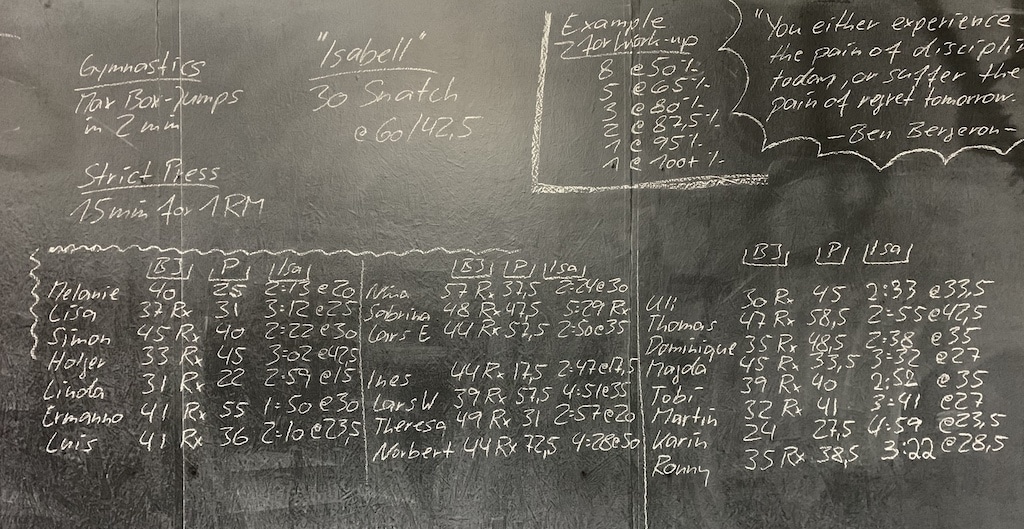 Gymnastics
Max Box-Jumps
in 2 min
Strict Press
15min for 1RM
"Isabell"
30 Snatch
@ 60/42,5
Example
for Work-up
8 @ 50%
5 @ 65%
3 @ 80%
2 @ 87,5%
1 @ 95%
1 @ 100+%
"You either experience
the pain of discipli
today, or suffer the
pain of regret tomorrow.
- Ben Bergeron -
BJ P Isa
Melanie 40 25 2:13 @ 20
Lisa 37 Rx 31 3:12 @ 25
Simon 45 Rx 40 2:22 @ 30
Holger 33 Rx 45 3:02 @ 42,5
Linda 31 Rx 22 2:59 @ 15
Ermanno 41 Rx 55 1:50 @ 30
Luis 41 Rx 36 2:10 @ 23,5
BJ P Isa
Nina 57 Rx 37,5 2:24 @ 30
Sabrina 48 Rx 47,5 5:29 Rx
Lars E 44 Rx 57,5 2:50 @ 35
Ines 44 Rx 17,5 2:47 @ 17,5
Lars W 39 Rx 57,5 4:51 @ 35
Theresa 49 Rx 31 2:57 @ 20
Norbert 44 Rx 72,5 4:28 @ 50
BJ P Isa
Uli 30 Rx 45 2:33 @ 33,5
Thomas 47 Rx 58,5 2:55 @ 42,5
Dominique 35 Rx 48,5 2:38 @ 35
Magda 45 Rx 33,5 3:32 @ 27
Tobi 39 Rx 40 2:52 @ 35
Martin 32 Rx 41 3:41 @ 27
Karin 24 27,5 4:59 @ 23,5
Ronny 35 Rx 38,5 3:22 @ 28,5